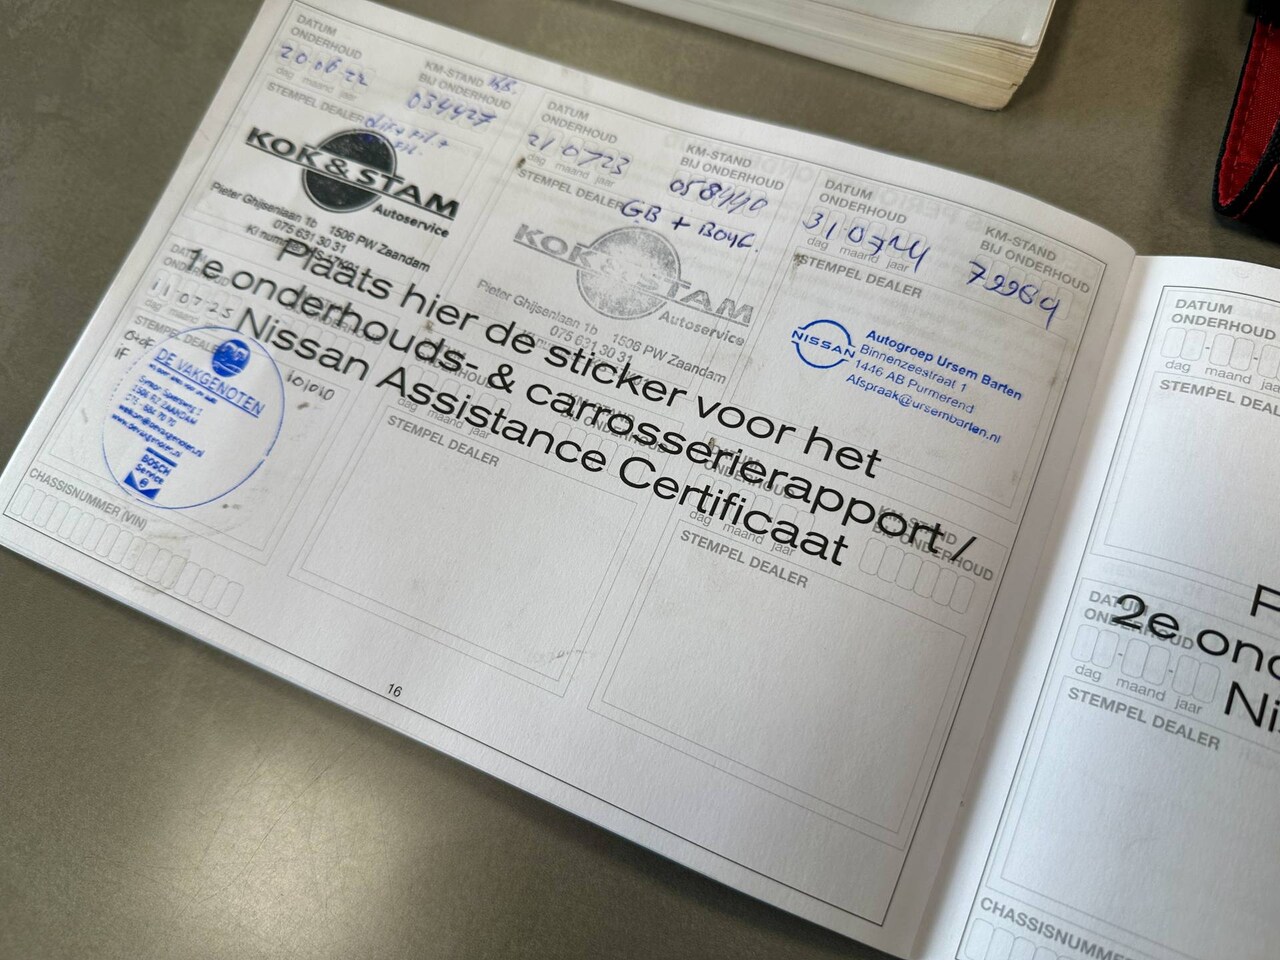 DATUM
ONDERHOUD
20 06 22
dag maand jaar
KM-STAND
BIJ ONDERHOUD
034427
STEMPEL DEALER
KOK & STAM
Autoservice
Pieter Ghijsenlaan 1b 1506 PW Zaandam
075 631 30 31
DATUM
ONDERHOUD
21 07 23
dag maand jaar
KM-STAND
BIJ ONDERHOUD
058440
STEMPEL DEALER
GB +
KOK & STAM
Autoservice
Pieter Ghijsenlaan 1b 1506 PW Zaandam
075 631 30 31
DATUM
ONDERHOUD
31 07 24
dag maand jaar
KM-STAND
BIJ ONDERHOUD
72969
STEMPEL DEALER
NISSAN
Autogroep Ursem Barten
Binnenzeestraat 1
1446 AB Purmerend
Afspraak@ursembarten.nl
Plaats hier de sticker voor het
1e onderhouds- & carrosserierapport /
Nissan Assistance Certificaat
11 07 25
STEMPEL DEALER
DE VAKGENOTEN
ZAANDAM
BOSCH
Service
101010
CHASSISNUMMER (VIN)
dag maand jaar
STEMPEL DEALER
BIJ ONDERHOUD
dag maand jaar
STEMPEL DEALER
16
DATUM
ONDERHOUD
dag maand jaar
STEMPEL DEALER
DATUM
ONDERHOUD
2e
dag maand jaar
STEMPEL DEALER